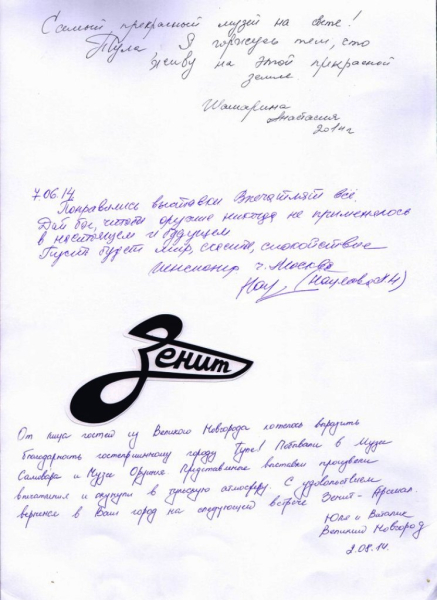 Самый прекрасный музей на свете!
Тула Я горжусь тем, что
живу на этой прекрасной
земле.
Шамарина
Анастасия
2014г.
7.06.14
Понравились выставки Впечатляет всё.
Дай бог, чтобы оружие никогда не применялось
в настоящем и будущем
Пусть будет мир, счастье, спокойствие
Пенсионер г. Москва
Зенит
От лица гостей из Великого Новгорода хотелось выразить
благодарность гостеприимному городу Туле! Побывали в Музее
Самовара и Музее Оружия. Представленные выставки произвели
впечатления и окунули в тульскую атмосферу. С удовольствием
вернемся в Ваш город на следующей встрече Зенит - Арсенал.
Юля и Виталие
Великий Новгород
2.08.14.